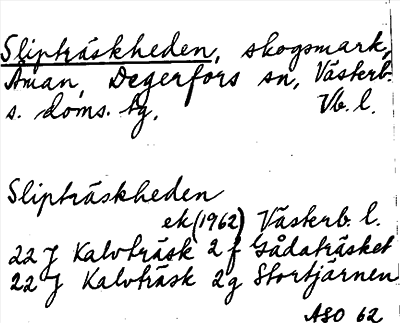 Slipträskheden, skogsmark,
Åman, Degerfors sn, Västerb.
s. doms. tg, Vb. l.
Slipträskheden
ek (1962) Västerb. l.
22 J Kalvträsk 2 f Gådaträsket
22 J Kalvträsk 2g Stortjärnen
ASO 62